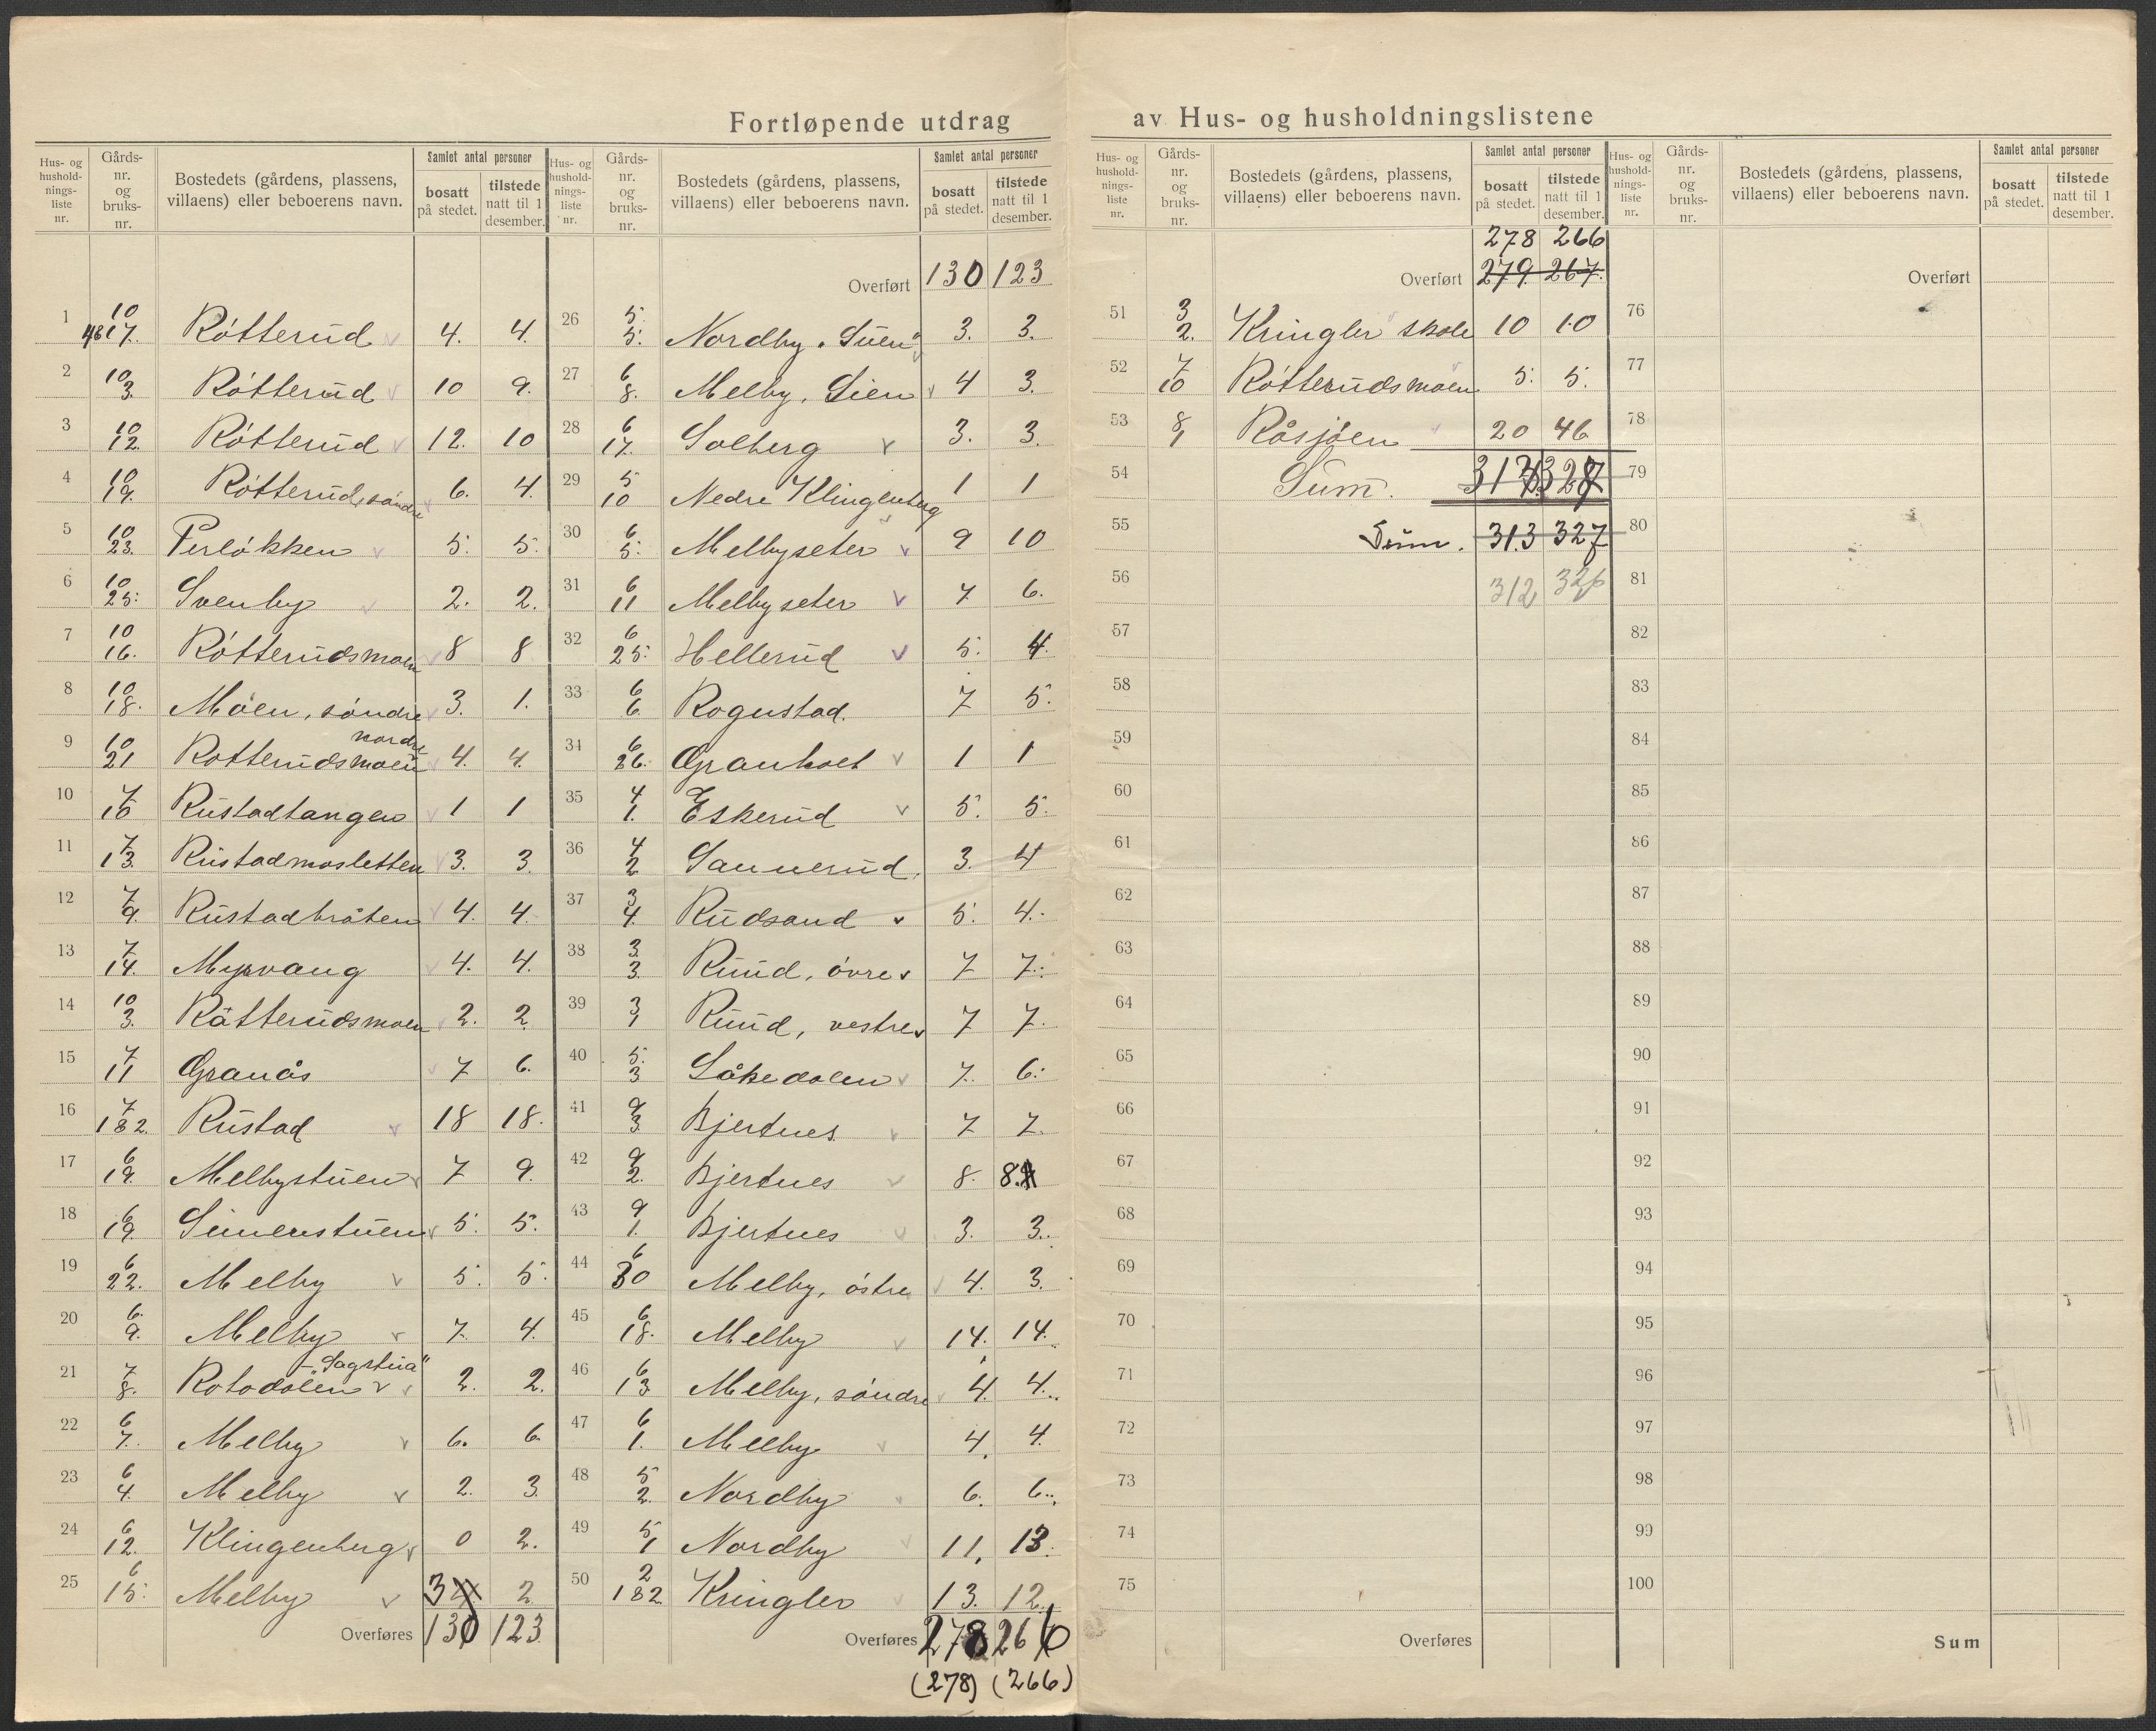 Fortløpende utdrag av Hus- og husholdningslistene
Hus- og hushold-nings-liste nr. | Gårds-nr. og bruks-nr. | Bostedets (gårdens, plassens, villaens) eller beboerens navn. | Samlet antal personer | bosatt på stedet. | tilstede natt til 1 desember.
1 10/4617. Røtterud 4. 4.
2 10/3. Røtterud 10 9.
3 10/12. Røtterud 12. 10
4 10/19. Røtterud, søndre 6. 4.
5 10/23. Perløkken 5. 5.
6 10/25. Svenby 2. 2.
7 10/16. Røtterudsmoen 8 8
8 10/18. Moen, søndre 3. 1.
9 10/21 Rotterudsmoen nordre 4. 4.
10 7/15 Rustadtangen 1 1
11 7/13. Rustadmosletten 3. 3.
12 7/9. Rustadbråten 4. 4.
13 7/14. Myrvang 4. 4.
14 10/3. Råtterudsmoen 2. 2
15 7/11 Granås 7 6.
16 7/1&2. Rustad 18 18.
17 6/19. Melbystuen 7 9.
18 6/19. Simenstuen 5. 5.
19 6/22. Melby 5. 5.
20 6/9. Melby 7. 4.
21 7/8. Rotodalen - Sagstua" 2. 2.
22 6/7. Melby 6. 6.
23 6/4. Melby 2. 3.
24 6/12. Klingenberg 0 2.
25 6/15. Melby 3 2
Overføres 130 123
Hus- og hushold-nings-liste nr. | Gårds-nr. og bruks-nr. | Bostedets (gårdens, plassens, villaens) eller beboerens navn. | Samlet antal personer | bosatt på stedet. | tilstede natt til 1 desember.
Overført 130 123
26 5/5. Nordby. Stuen" 3. 3.
27 6/8. Melby, Lien 4 3.
28 6/17. Solberg 3. 3.
29 5/10 Nedre Klingenberg 1 1
30 6/5. Melbyseter 9 10
31 6/11 Melbyseter 7 6.
32 6/25. Hellerud 5. 4.
33 6/6. Rognstad. 7 5.
34 6/26. Granholt 1 1
35 4/1. Eskerud 5. 5.
36 4/2 Sannerud. 3. 4
37 3/4. Rudsand 5. 4.
38 3/3. Ruud, øvre 7 7.
39 3/1 Ruud, vestre 7 7.
40 5/3 Låkedalen 7. 6.
41 9/3. Bjertnes 7 7.
42 9/2. Bjertnes 8. 8.
43 9/1. Bjertnes 3. 3.
44 6/30 Melby, østre 4. 3.
45 6/18. Melby 14. 14.
46 6/13 Melby, søndre 4. 4.
47 6/1. Melby 4. 4.
48 5/2. Nordby 6. 6.
49 5/1 Nordby 11. 13.
50 2/1&2 Kringler 13. 12.
Overføres 278 266
(278) (266)
Hus- og hushold-nings-liste nr. | Gårds-nr. og bruks-nr. | Bostedets (gårdens, plassens, villaens) eller beboerens navn. | Samlet antal personer | bosatt på stedet. | tilstede natt til 1 desember.
278 266
Overført 279. 267.
51 3/2. Kringler skole 10 10
52 7/10 Røtterudsmoen 5. 5.
53 8/1 Råsjøen 20 46
54 Sum.
55 Sum. 313 327
56 312 326
57
58
59
60
61
62
63
64
65
66
67
68
69
70
71
72
73
74
75
Overføres
Hus- og hushold-nings-liste nr. | Gårds-nr. og bruks-nr. | Bostedets (gårdens, plassens, villaens) eller beboerens navn. | Samlet antal personer | bosatt på stedet. | tilstede natt til 1 desember.
Overført
76
77
78
79
80
81
82
83
84
85
86
87
88
89
90
91
92
93
94
95
96
97
98
99
100
Sum